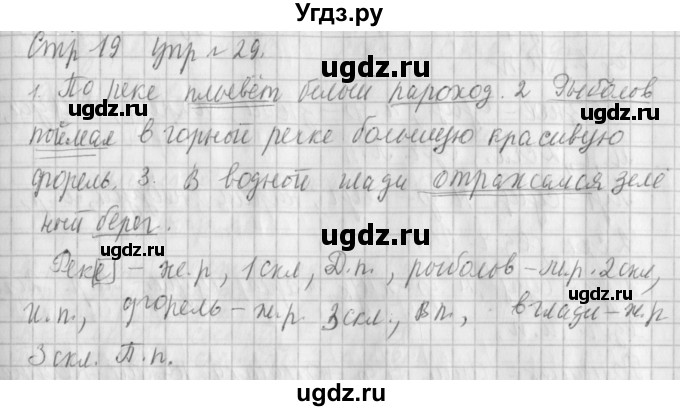 Угдз.ру
Стр 19 упр № 29.
ugdz.ru ugdz.ru
1. По реке плывёт белый пароход. 2 Рыболов
поймал в горной речке большую красивую
ugdz.ru ugdz.ru
форель. 3. В водной глади отражался зелё
ный берег.
ugdz.ru ugdz.ru
Рек[е] – ж.р, 1 скл, Д.п., рыболов – м.р. 2 скл,
и.п., форель – ж.р. 3 скл., вп, в глади – ж.р
3 скл. П.п.
ugdz.ru ugdz.ru